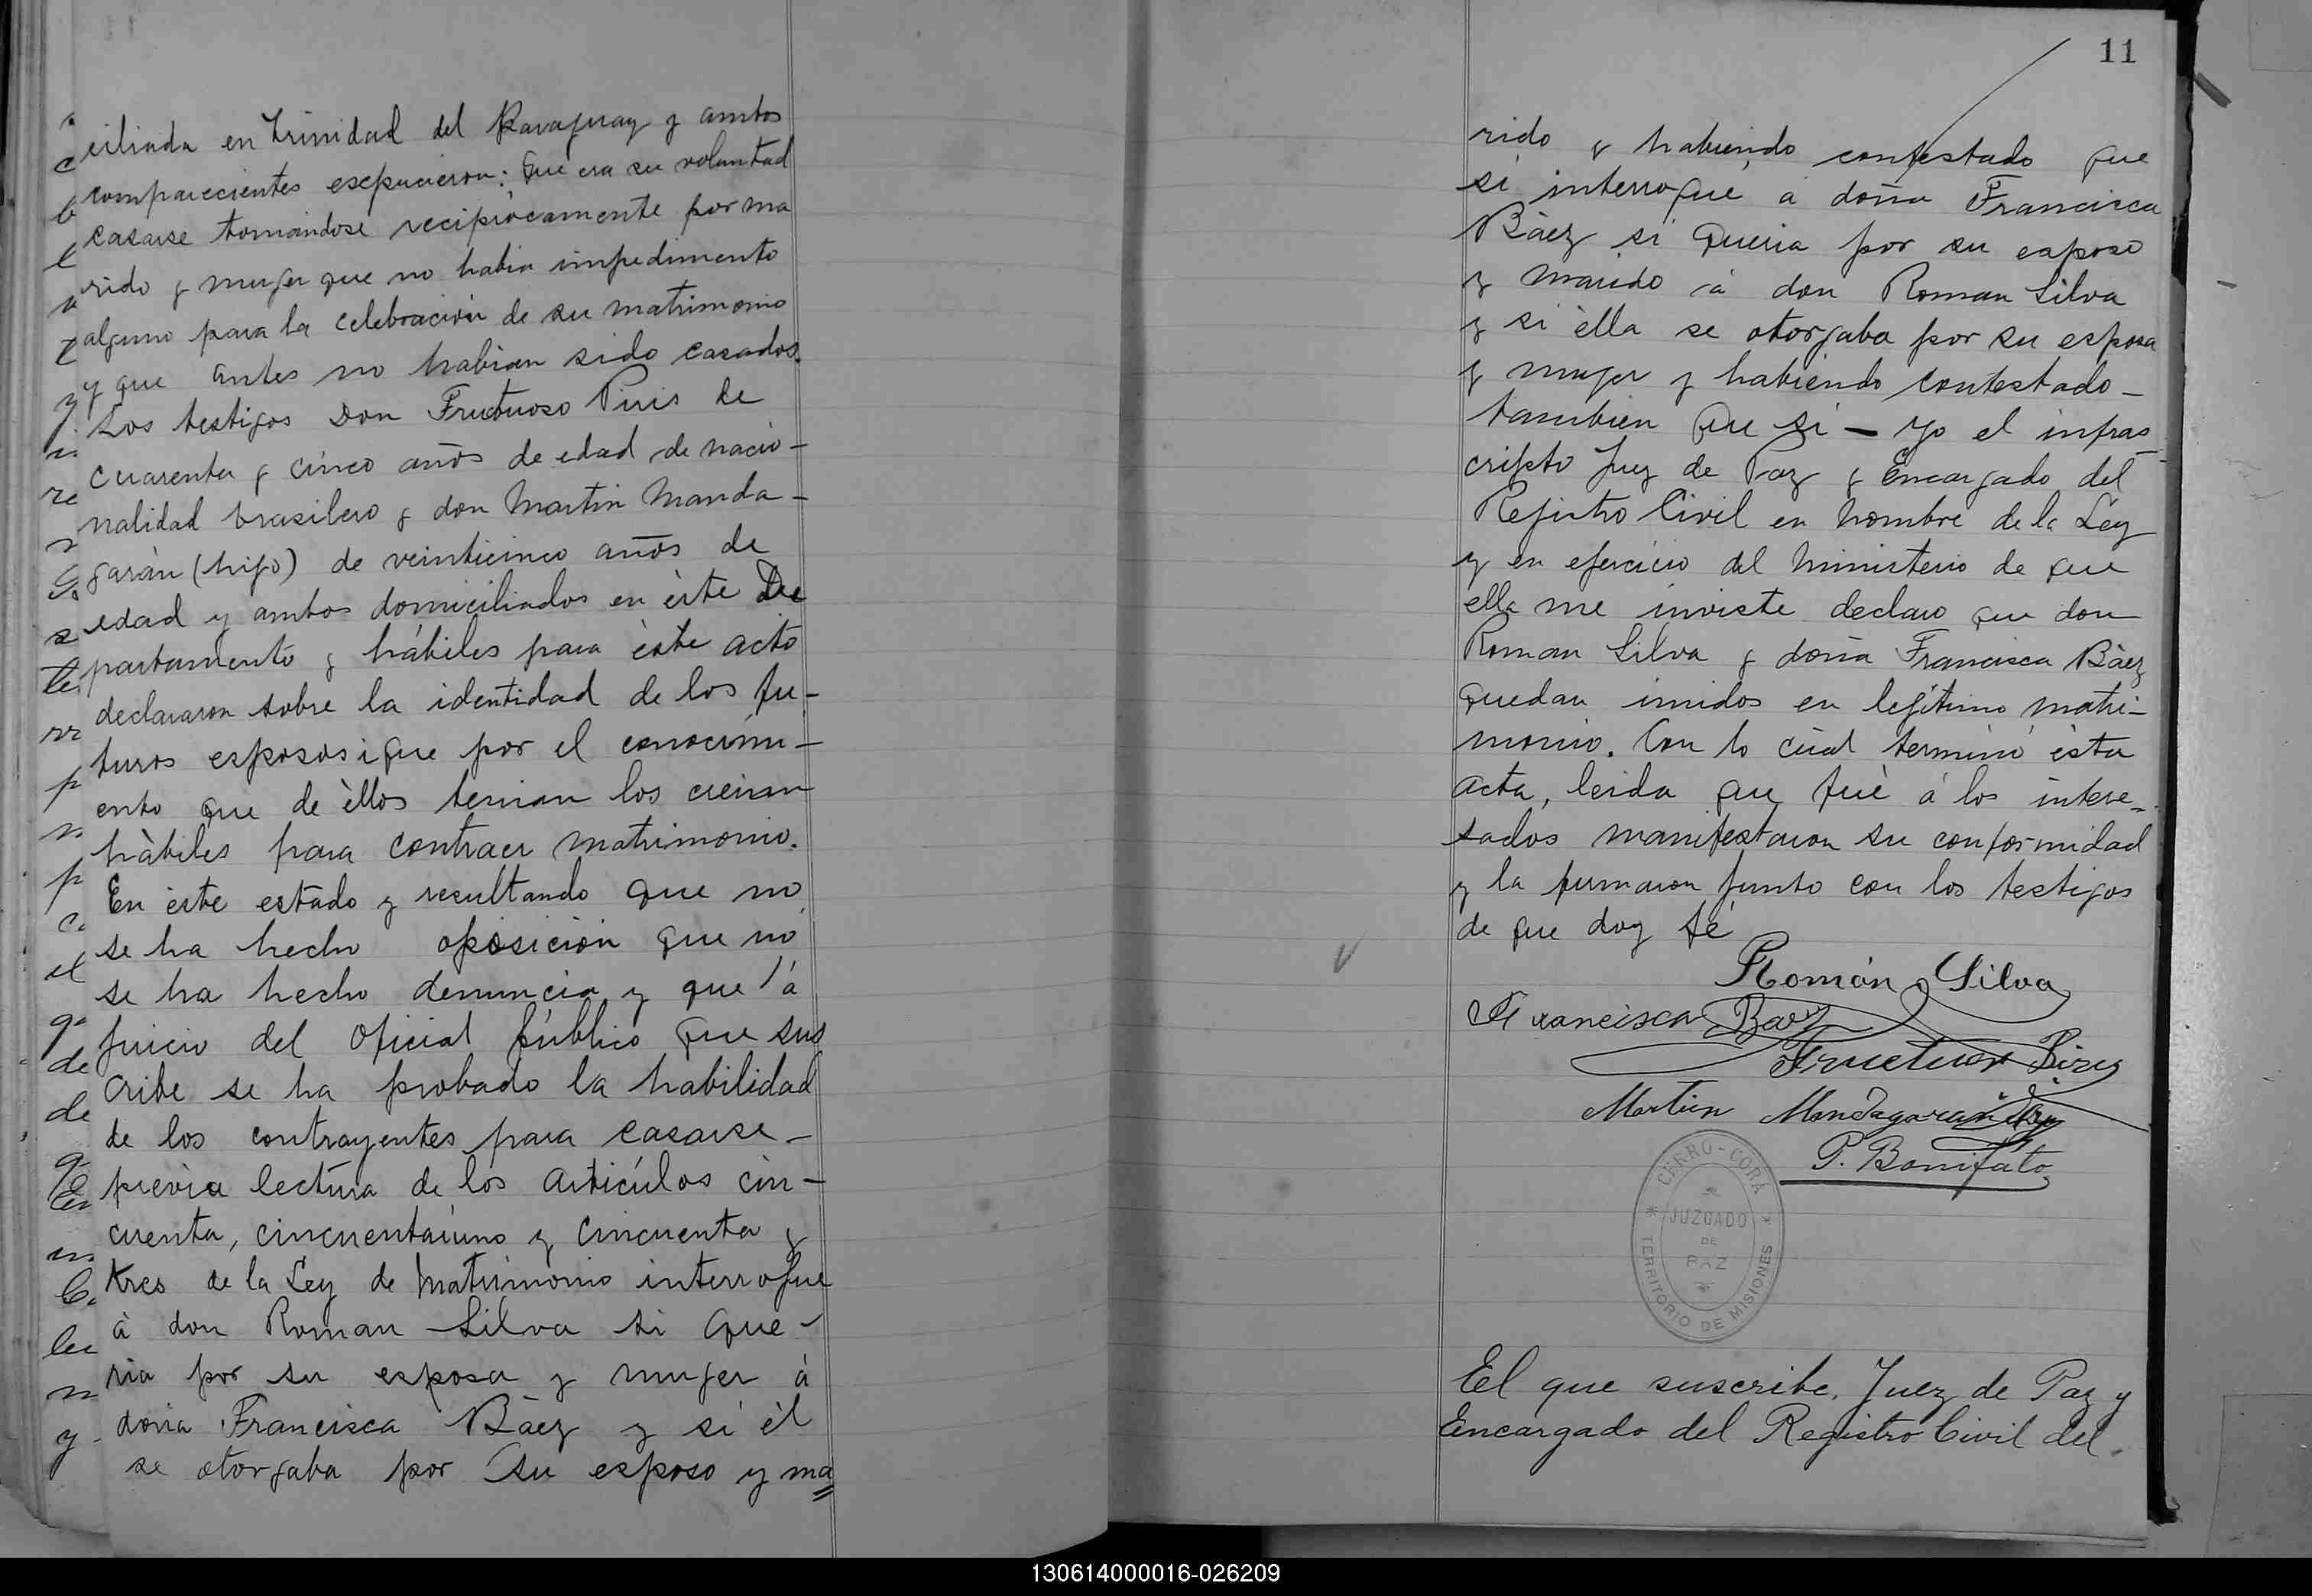 ciliada en Trinidad del Paraguay y ambos
comparecientes expusieron: Que era su voluntad
casarse tomándose reciprocamente por ma
rido y muger que no habia impedimento
alguno para la celebración de su matrimonio
y que antes no habian sido casados.
Los testigos Don Fructuoso Piris de
cuarenta y cinco años de edad de nacio-
nalidad brasilero y don Martin Manda-
garán (hijo) de veinticinco años de
edad y ambos domiciliados en éste De
partamento y hábiles para éste acto
declararon sobre la identidad de los fu-
turos esposos i que por el conocimi-
ento que de éllos tenian los creian
hàbiles para contraer matrimonio.
En éste estado y resultando que no
se ha hecho oposición que no
se ha hecho denuncia y que á
juicio del oficial público que sus
cribe se ha probado la habilidad
de los contrayentes para casarse-
previa lectura de los articúlos cin-
cuenta, cincuentaiuno y cincuenta y
tres de la Ley de Matrimonio interrogue
á don Roman Silva si que-
ria por su esposa y mujer á
doña Francisca Báez y si él
se otorgaba por su esposo y ma=
11
rido y habiendo contestado que
si interrogué á doña Francisca
Báez si queria por su esposo
y marido á don Roman Silva
y si élla se otorgaba por su esposa
y muger y habiendo contestado-
tambien que si - Yo el infras
cripto Juez de Paz y Encargado del
Registro Civil en nombre de la Ley
y en ejercicio del Ministerio de que
ella me inviste declaro que don
Roman Silva y doña Francisca Báez
quedan unidos en legitimo matri-
monio. Con lo cúal terminó ésta
acta, leida que fué á los intere=
sados manifestaron su conformidad
y la firmaron junto con los testigos
de que doy fé
Román Silva
Francisca Baez
Fructuoso Pires
Martin Mandagarán
P. Bonifato
CERRO-CORÁ
JUZGADO
DE
PAZ
TERRITORIO DE MISIONES
El que suscribe, Juez de Paz y
Encargado del Registro Civil del
130614000016-026209